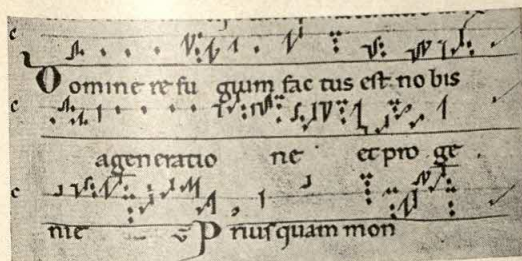 Domine re fu gium fac tus est no bis
a generatio ne et pro ge
nie ℣ Prius quam mon